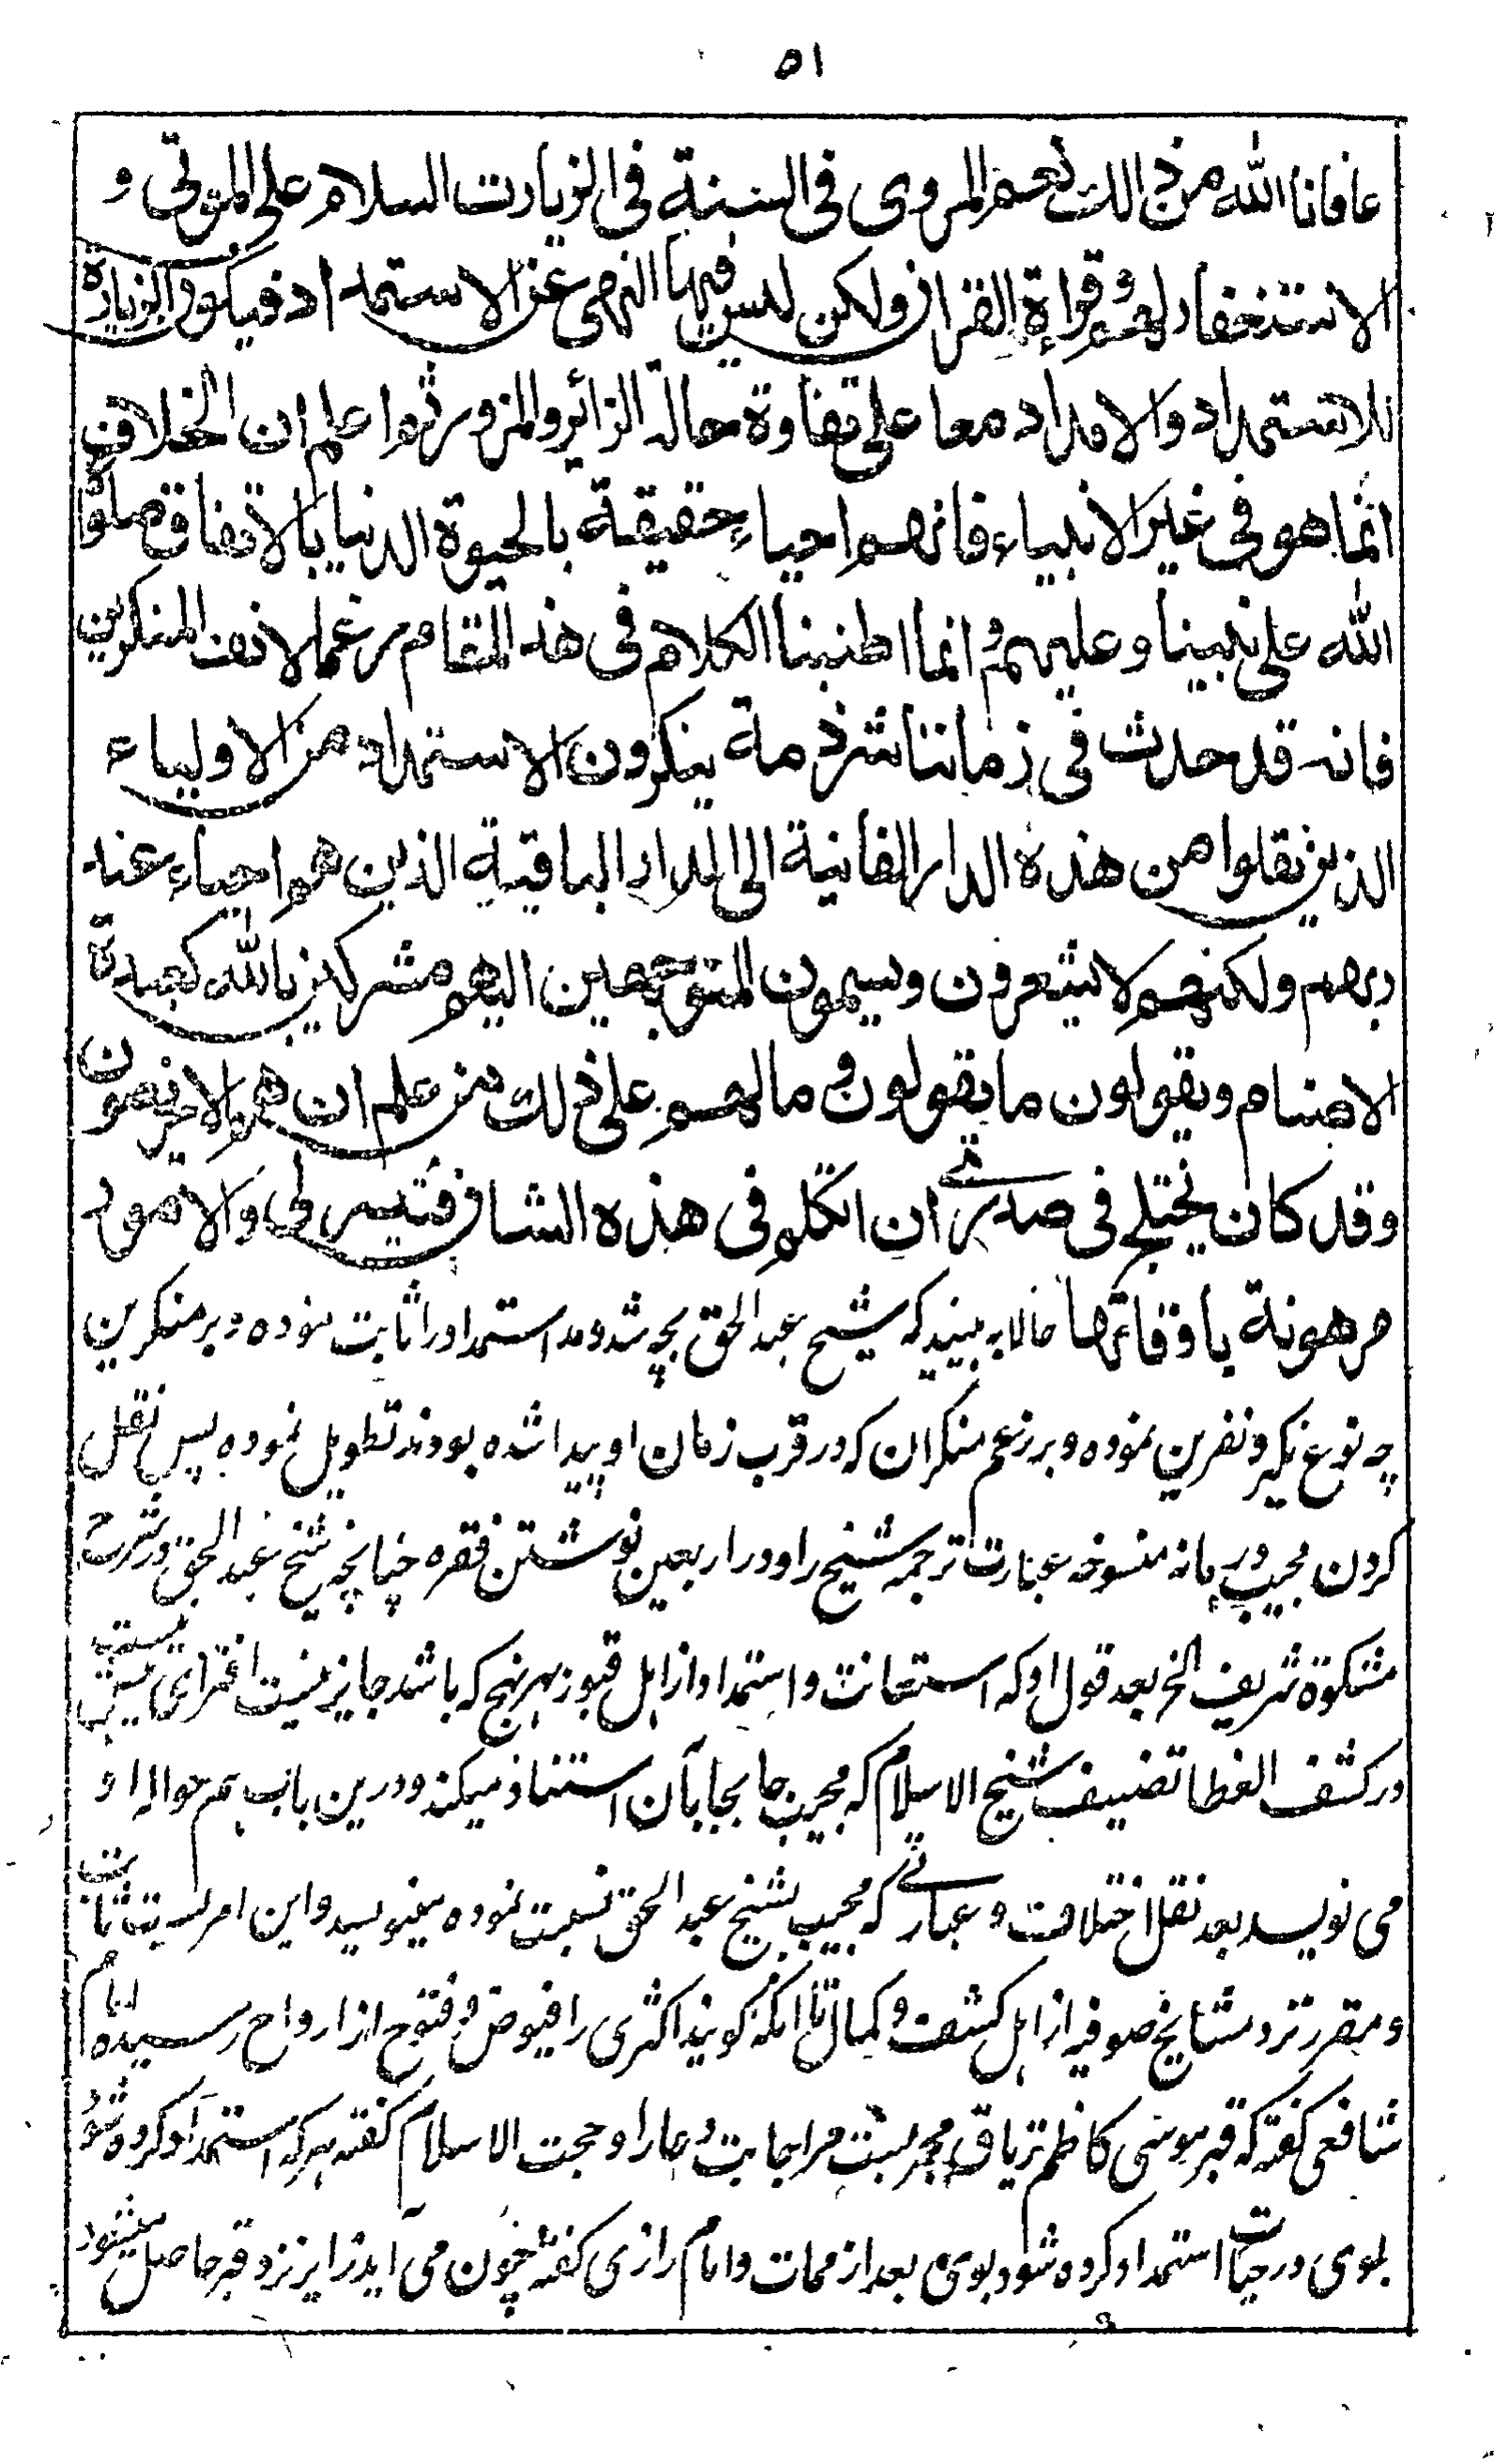 ۵۱
عافانا الله من ذالك نعم المروى فى السنة فى الزيارت السلام على الموتى و
الاستغفار لهم و قراءة القران ولكن ليس فيها النهى عن الاستمداد فيكون الزيارة
للاستمداد والامداد معا على تفاوة حالة الزائر والمزور ثم اعلم ان الخلاف
انما هو فى غير الانبياء فانهم احياء حقيقة بالحيوة الدنيا بالاتفاق صلوة
الله على نبينا وعليهم و انما اطنبنا الكلام فى هذ المقام رغما لانف المنكرين
فانه قد حدث فى زماننا شرذمة ينكرون الاستمداد من الاولياء
الذين نقلوا من هذه الدار الفانية الى الدار الباقية الذين هم احياء عند
ربهم ولكنهم لا يشعرون ويسمون المتوجهين اليهم مشركين بالله كعبدة
الاصنام ويقولون ما يقولون و ما لهم على ذلك من علم ان هم الا يخرصون
وقد كان يختلج فى صدرى ان اتكلم فى هذه الشان فتيسر لى والامور
مرهونة باوقاتها حالا به بينيد كه شيخ عبد الحق بچه شد و مد استمداد را ثابت نموده و بر منكرين
چه نوع نكير و نفرين نموده و بر زعم منكران كه در قرب زمان او پيدا شده بودند تطويل نموده پس نقل
كردن مجيب در مائه منسوخه عبارت ترجمه شيخ را و در اربعين نوشتن فقره چنانچه شيخ عبد الحق در شرح
مشكوة شريف الخ بعد قول او كه استعانت و استمداد از اهل قبور بهر نهج كه باشد جايز نيست افتراى بيش نيست
در كشف الغطا تصنيف شيخ الاسلام كه مجيب جا بجا بآن استناد ميكند و درين باب هم حواله او
مى نويسد بعد نقل اختلاف و عبارتے كه مجيب بشيخ عبد الحق نسبت نموده مينويسد و اين امريست ثابت
و مقرر نزد مشايخ صوفيه از اهل كشف و كمال تا آنكه گويند اكثرى را فيوض و فتوح از ارواح رسيده امام
شافعى گفته كه قبر موسى كاظم ترياق مجرب ست مر اجابت دعا را و حجت الاسلام گفته هر كه استمداد كرده شود
بوى در حيات استمداد كرده شود بوى بعد از ممات و امام رازى گفته چون مى آيد زاير نزد قبر حاصل ميشود